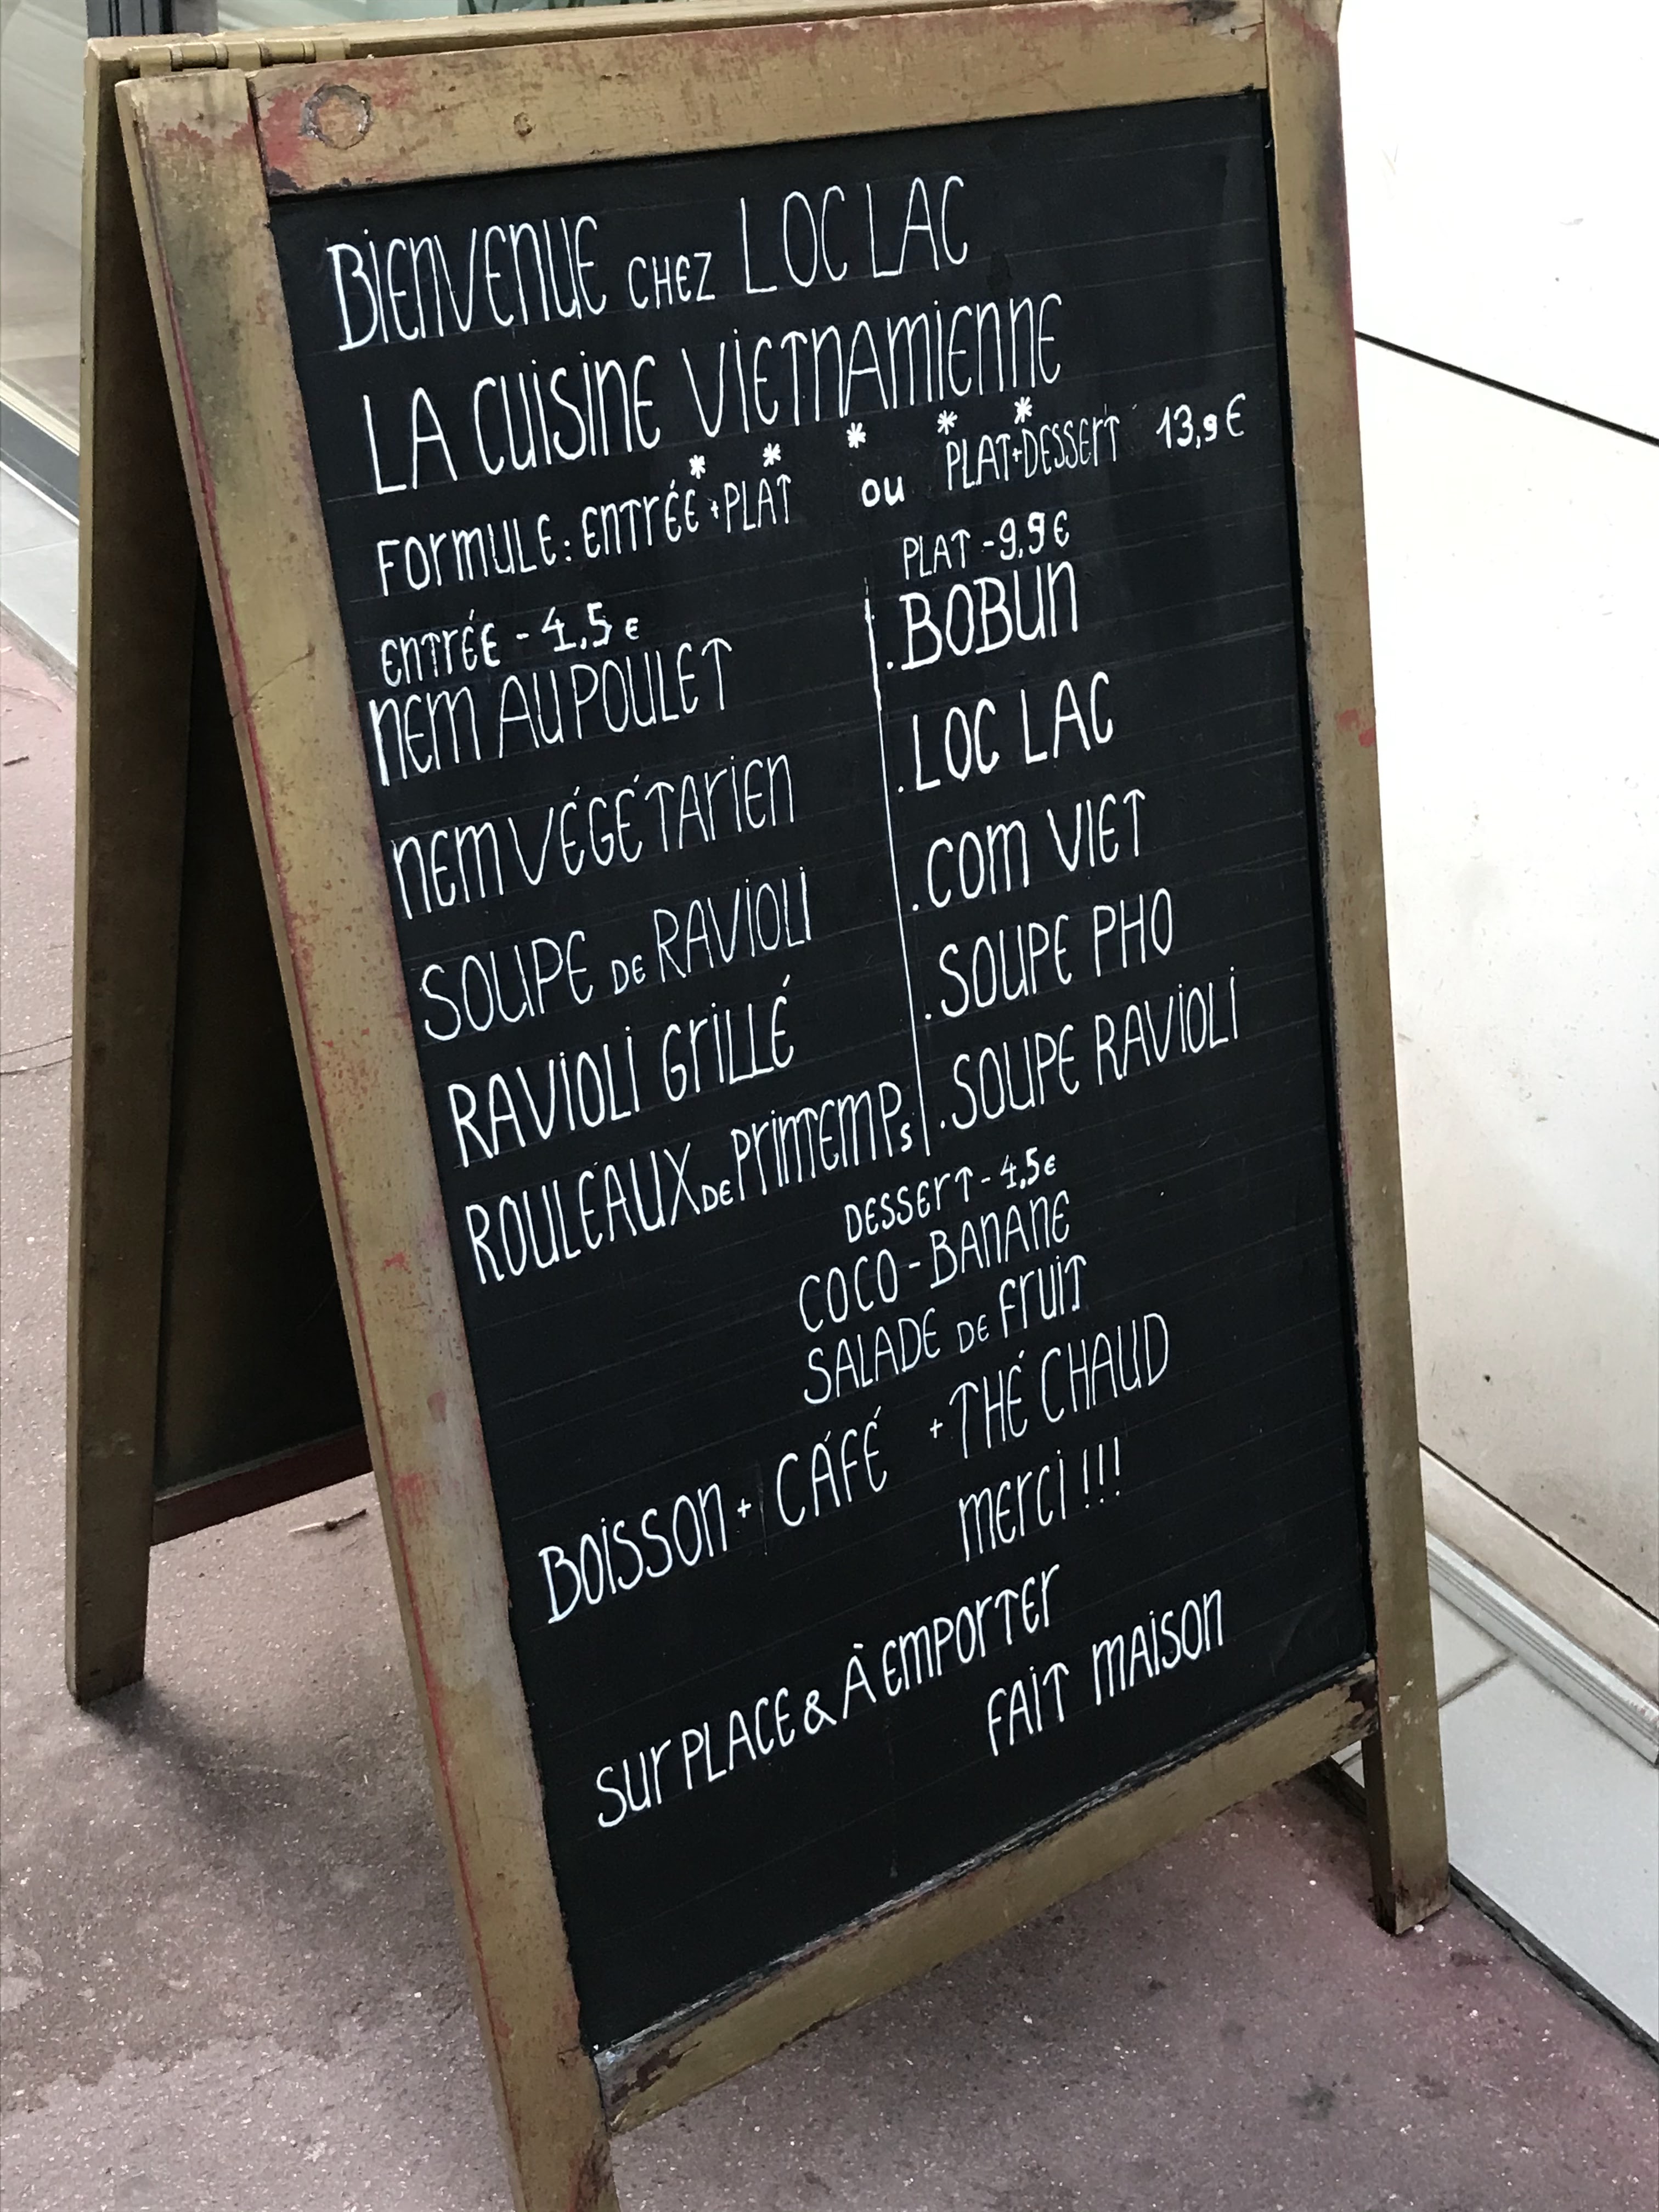 BIENVENUE CHEZ LOC LAC
LA CUISINE VIETNAMIENNE
* * * * *
FORMULE: ENTRÉE + PLAT OU PLAT+DESSERT 13,9€
ENTRÉE - 4,5€
NEM AU POULET
NEM VÉGÉTARIEN
SOUPE DE RAVIOLI
RAVIOLI GRILLÉ
ROULEAUX DE PRINTEMPS
PLAT - 9,9€
.BOBUN
.LOC LAC
.COM VIET
.SOUPE PHO
.SOUPE RAVIOLI
DESSERT - 4,5€
COCO - BANANE
SALADE DE FRUIT
BOISSON + CAFÉ + THÉ CHAUD
MERCI !!!
SUR PLACE & À EMPORTER
FAIT MAISON